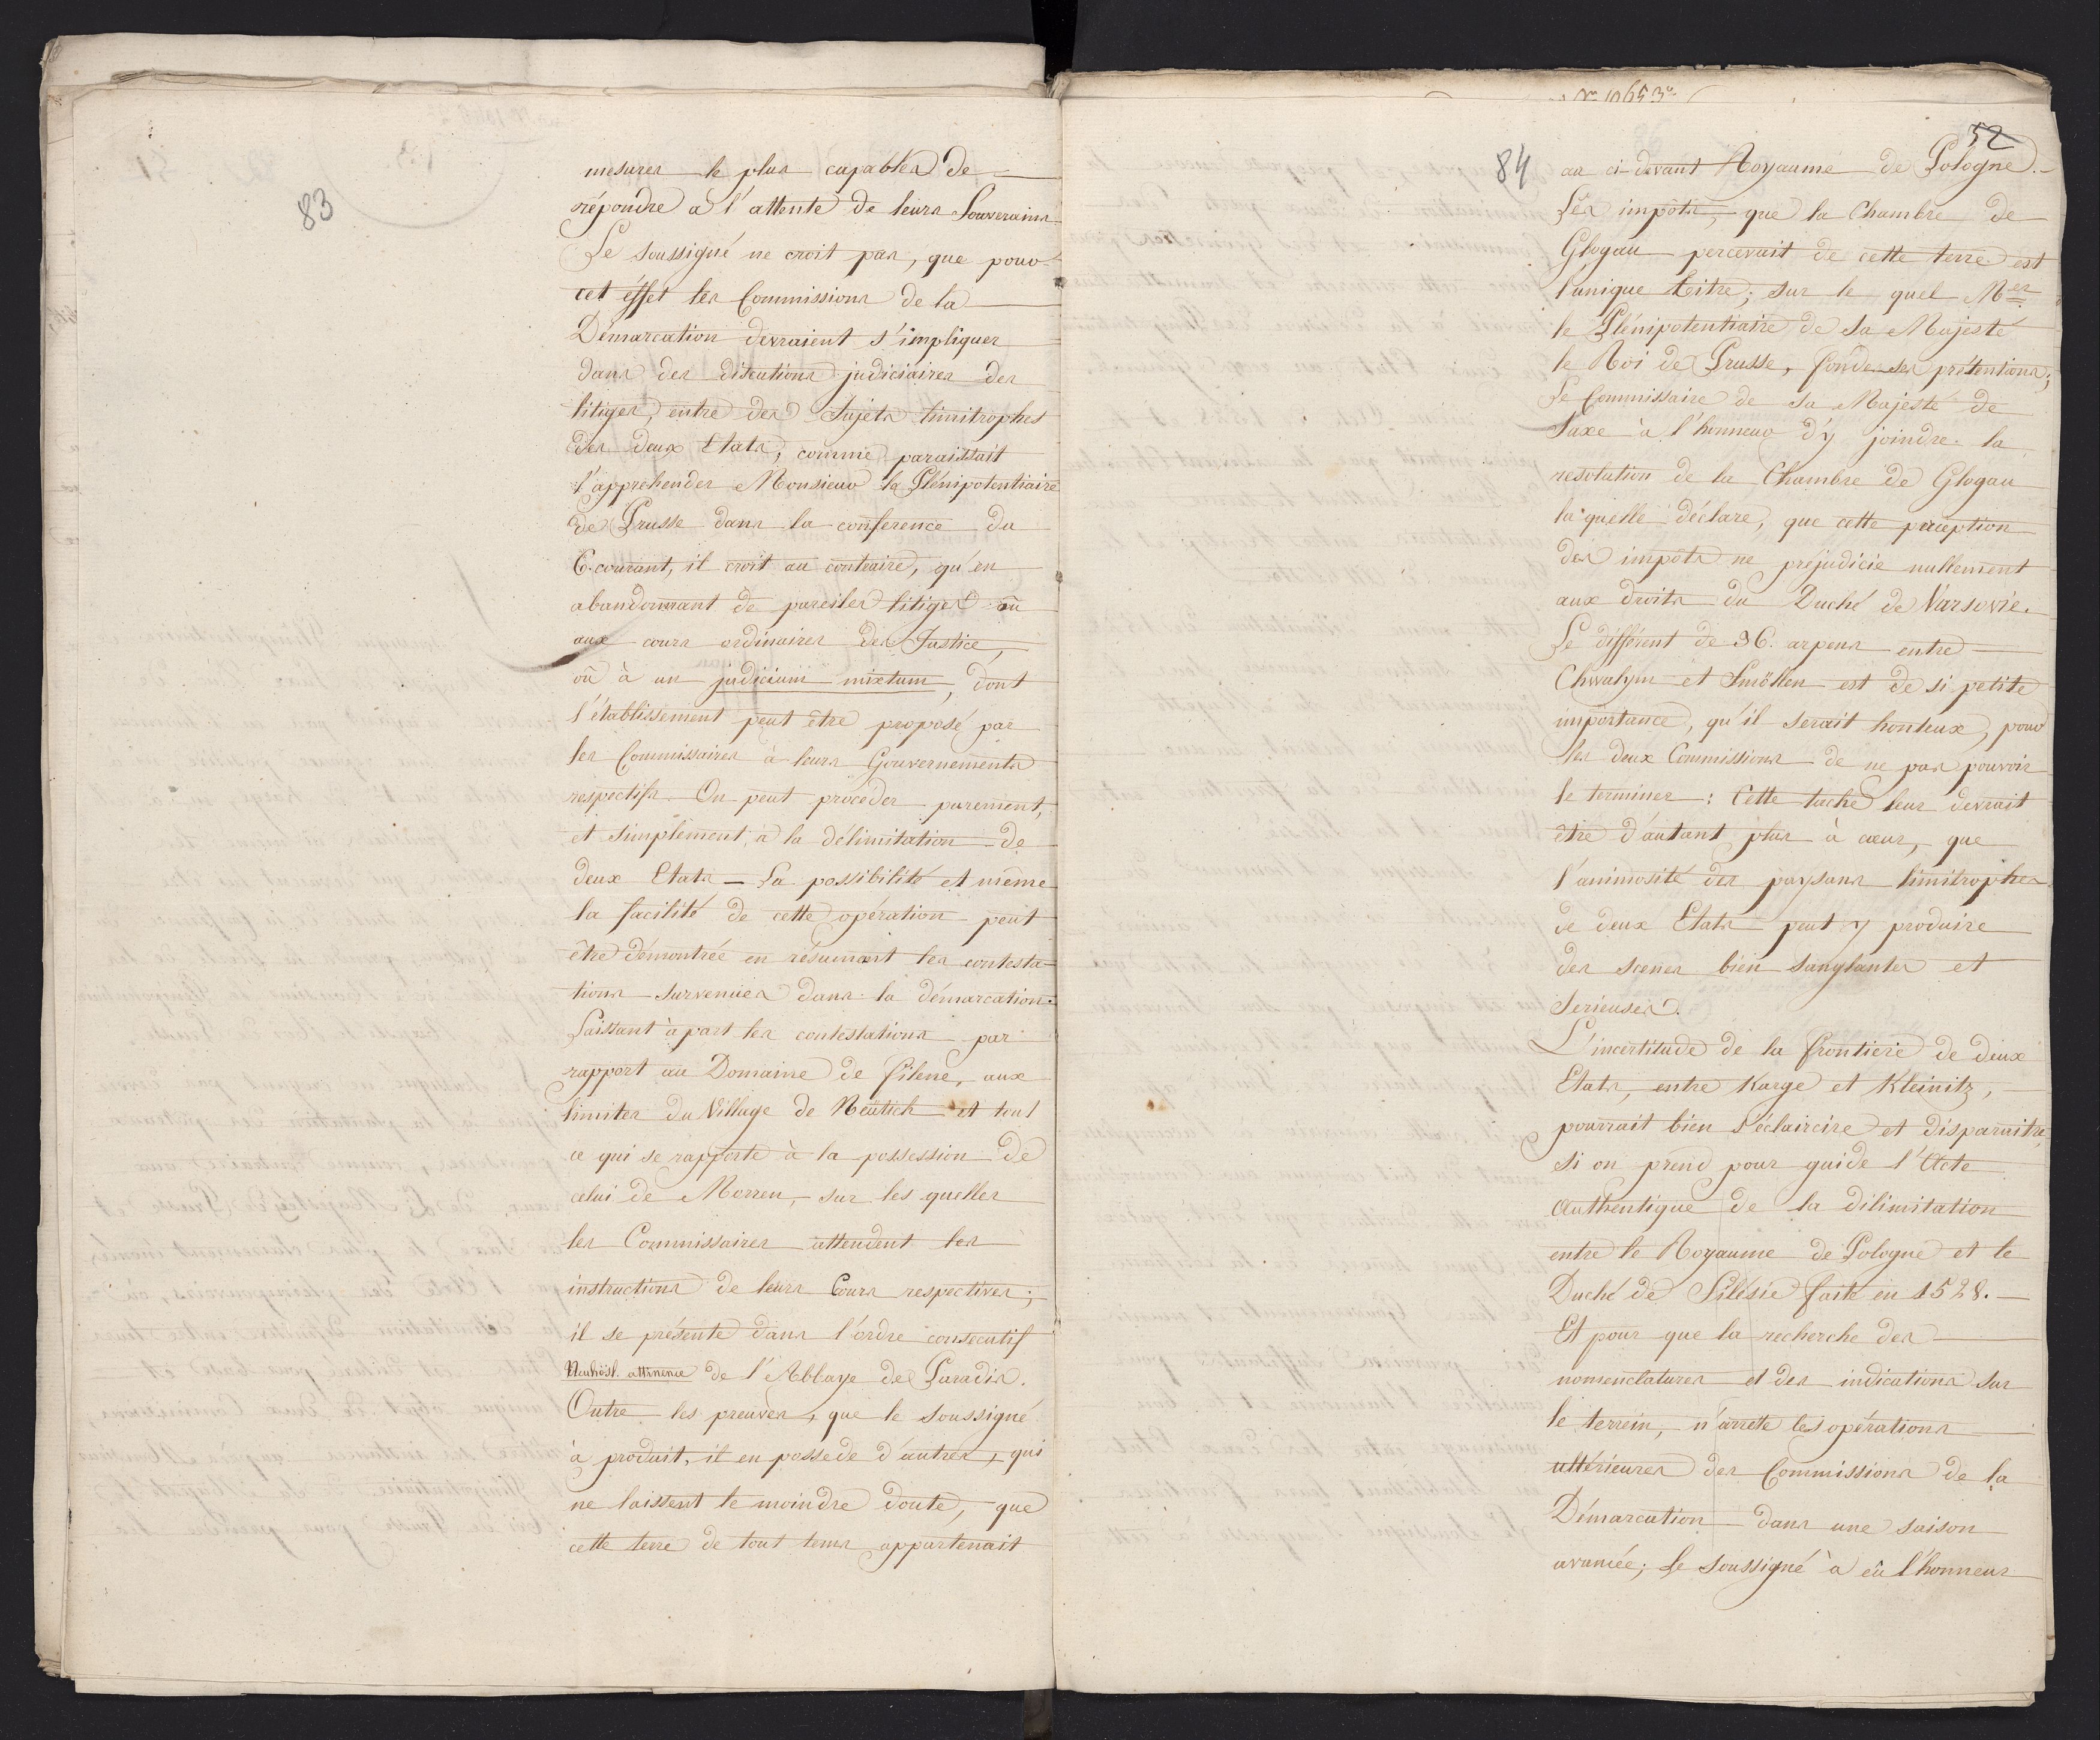 83
mesures le plus capables de
répondre à l'attente de leurs Souverains
Le soussigné ne croit pas, que pour
cet éffet les Commissions de la
Démarcation devraient s'impliquer
dans des discutions judiciaires des
litiges, entre des Sujets limitrophes
des deux Etats, comme paraissait
l'apprehender Monsieur la Plénipotentiaire
de Prusse dans la conference du
6. courant, il croit au contraire, qu'en
abandonnant de pareiles litiges où
aux cours ordinaires de Justice,
où à un judicium mixtum, dont
l'établissement peut être proposé par
les Commissaires à leurs Gouvernements
respectifs. On peut procéder purement,
et simplement, à la délimitation de
deux Etats – La possibilité et même
la facilité de cette opération peut
être démontrée en résumant les contesta-
tions survenues dans la démarcation.
Laissant à part les contestations par
rapport au Domaine de Filene, aux
limites du Village de Neütich et tout
ce qui se rapporte à la possession de
celui de Morren, sur les quelles
les Commissaires attendent les
instructions de leurs Cours respectives;
il se présente dans l'ordre consecutif
Neuhöfl. attinence de l'Abbaye de Paradis.
Outre les preuves, que le soussigné
à produit, il en possede d'autres, qui
ne laissent le moindre doute, que
cette terre de tout tems appartenait
No 10653
52
84
au ci-devant Royaume de Pologne.
Les impôts, que la Chambre de
Glogau percevait de cette terre est
l'unique titre; sur le quel Mer
le Plénipotentiaire de Sa Majesté
le Roi de Prusse, fonde ses prétentions;
Le Commissaire de Sa Majesté de
Saxe à l'honneur d'y joindre la
resolution de la Chambre de Glogau
la quelle déclare, que cette perception
des impots ne préjudicie nullement
aux droits du Duché de Varsovie.
Le différent de 36. arpens entre
Chwalym et Smöllen est de si petite
importance, qu'il serait honteux, pour
les deux Commissions de ne pas pouvoir
le terminer: Cette tache leur devrait
être d'autant plus à cœur, que
l'animosité des paysans limitrophes
de deux Etats peut y produire
des scenes bien sanglantes et
Serieuses.
L'incertitude de la frontiere de deux
Etats, entre Karge et Kleinitz,
pourrait bien s'éclaircire et disparaitre,
si on prend pour guide l'Acte
Authentique de la dilimitation
entre le Royaume de Pologne et le
Duché de Silésie faite en 1528.
Et pour que la recherche des
nomenclatures et des indications sur
le terrein, n'arrete les opérations
ultérieures des Commissions de la
Démarcation dans une saison
avancée; Le Soussigné à eû l'honneur